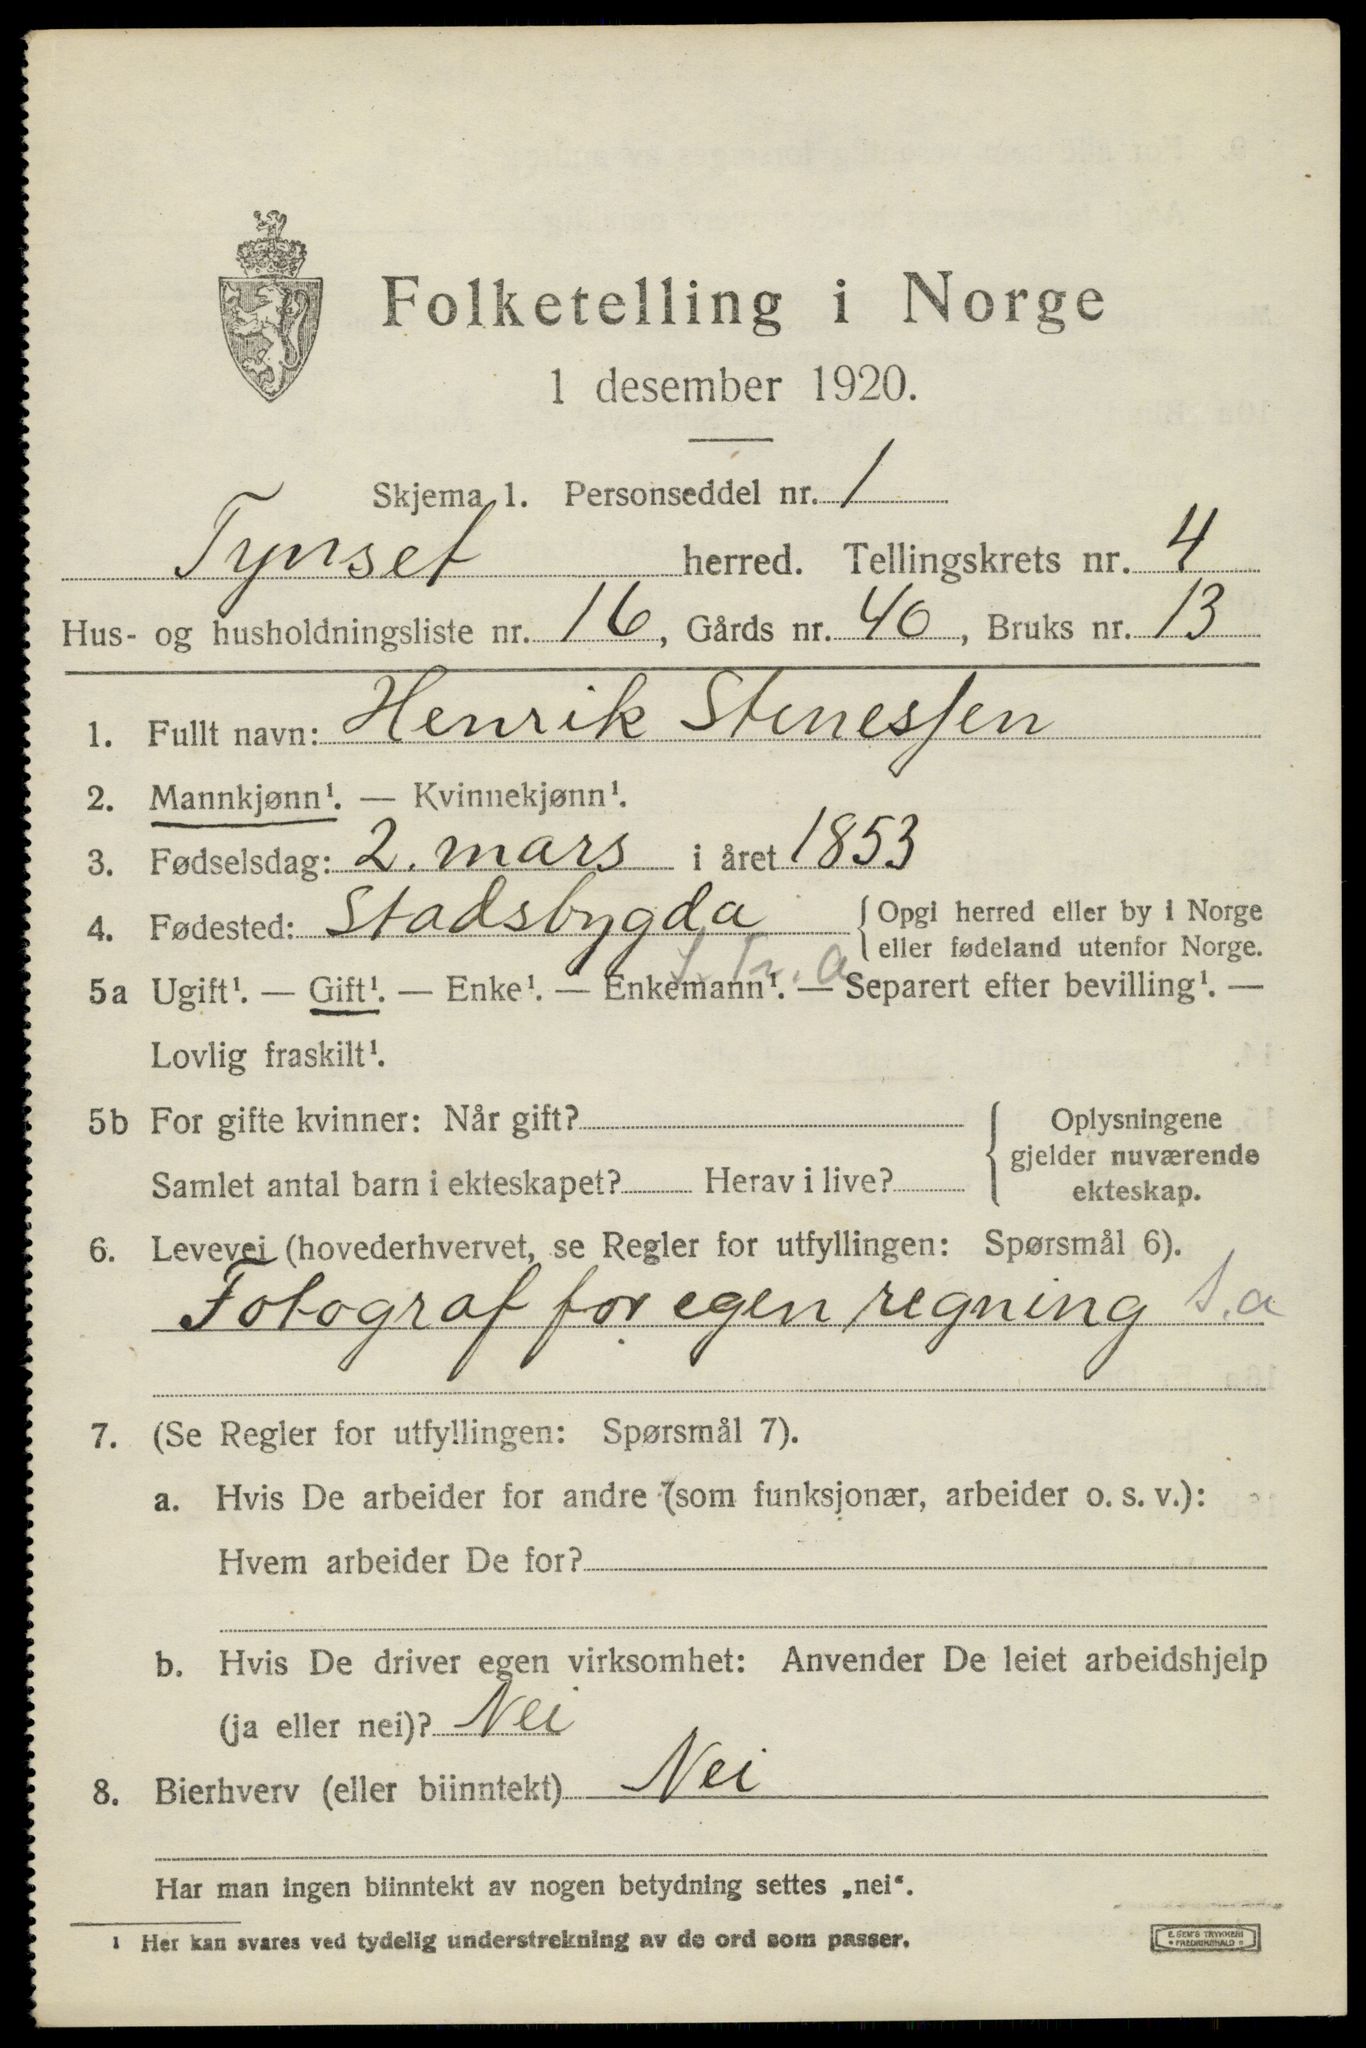 Folketelling i Norge
1 desember 1920.
Skjema 1. Personseddel nr. 1
Tynset herred. Tellingskrets nr. 4
Hus- og husholdningsliste nr. 16, Gårds nr. 40, Bruks nr. 13
1. Fullt navn: Henrik Stenessen
2. Mannkjønn¹. — Kvinnekjønn¹.
3. Fødselsdag: 2. mars i året 1853
4. Fødested: Stadsbygda {Opgi herred eller by i Norge
eller fødeland utenfor Norge.
S. Tr. a
5a Ugift¹. — Gift¹. — Enke¹. — Enkemann¹. — Separert efter bevilling¹. —
Lovlig fraskilt¹.
5b For gifte kvinner: Når gift? { Oplysningene
gjelder nuværende
Samlet antal barn i ekteskapet? Herav i live? ekteskap.
6. Levevei (hovederhvervet, se Regler for utfyllingen: Spørsmål 6).
Fotograf for egen regning S.a
7. (Se Regler for utfyllingen: Spørsmål 7).
a. Hvis De arbeider for andre (som funksjonær, arbeider o. s. v.):
Hvem arbeider De for?
b. Hvis De driver egen virksomhet: Anvender De leiet arbeidshjelp
(ja eller nei)? Nei
8. Bierhverv (eller biinntekt) Nei
Har man ingen biinntekt av nogen betydning settes „nei“.
¹ Her kan svares ved tydelig understrekning av de ord som passer.
E. SEM'S TRYKKERI
FREDRIKSHALD